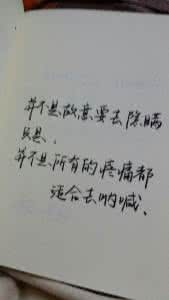 并不是故意要去隐瞒
只是、
并不是所有的疼痛都
适合去呐喊、